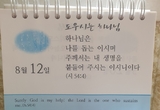 도우시는 하나님
하나님은
나를 돕는 이시며
주께서는 내 생명을
붙들어 주시는 이시니이다
(시 54:4)
8월 12일
Surely God is my help; the Lord is the one who sustains me.